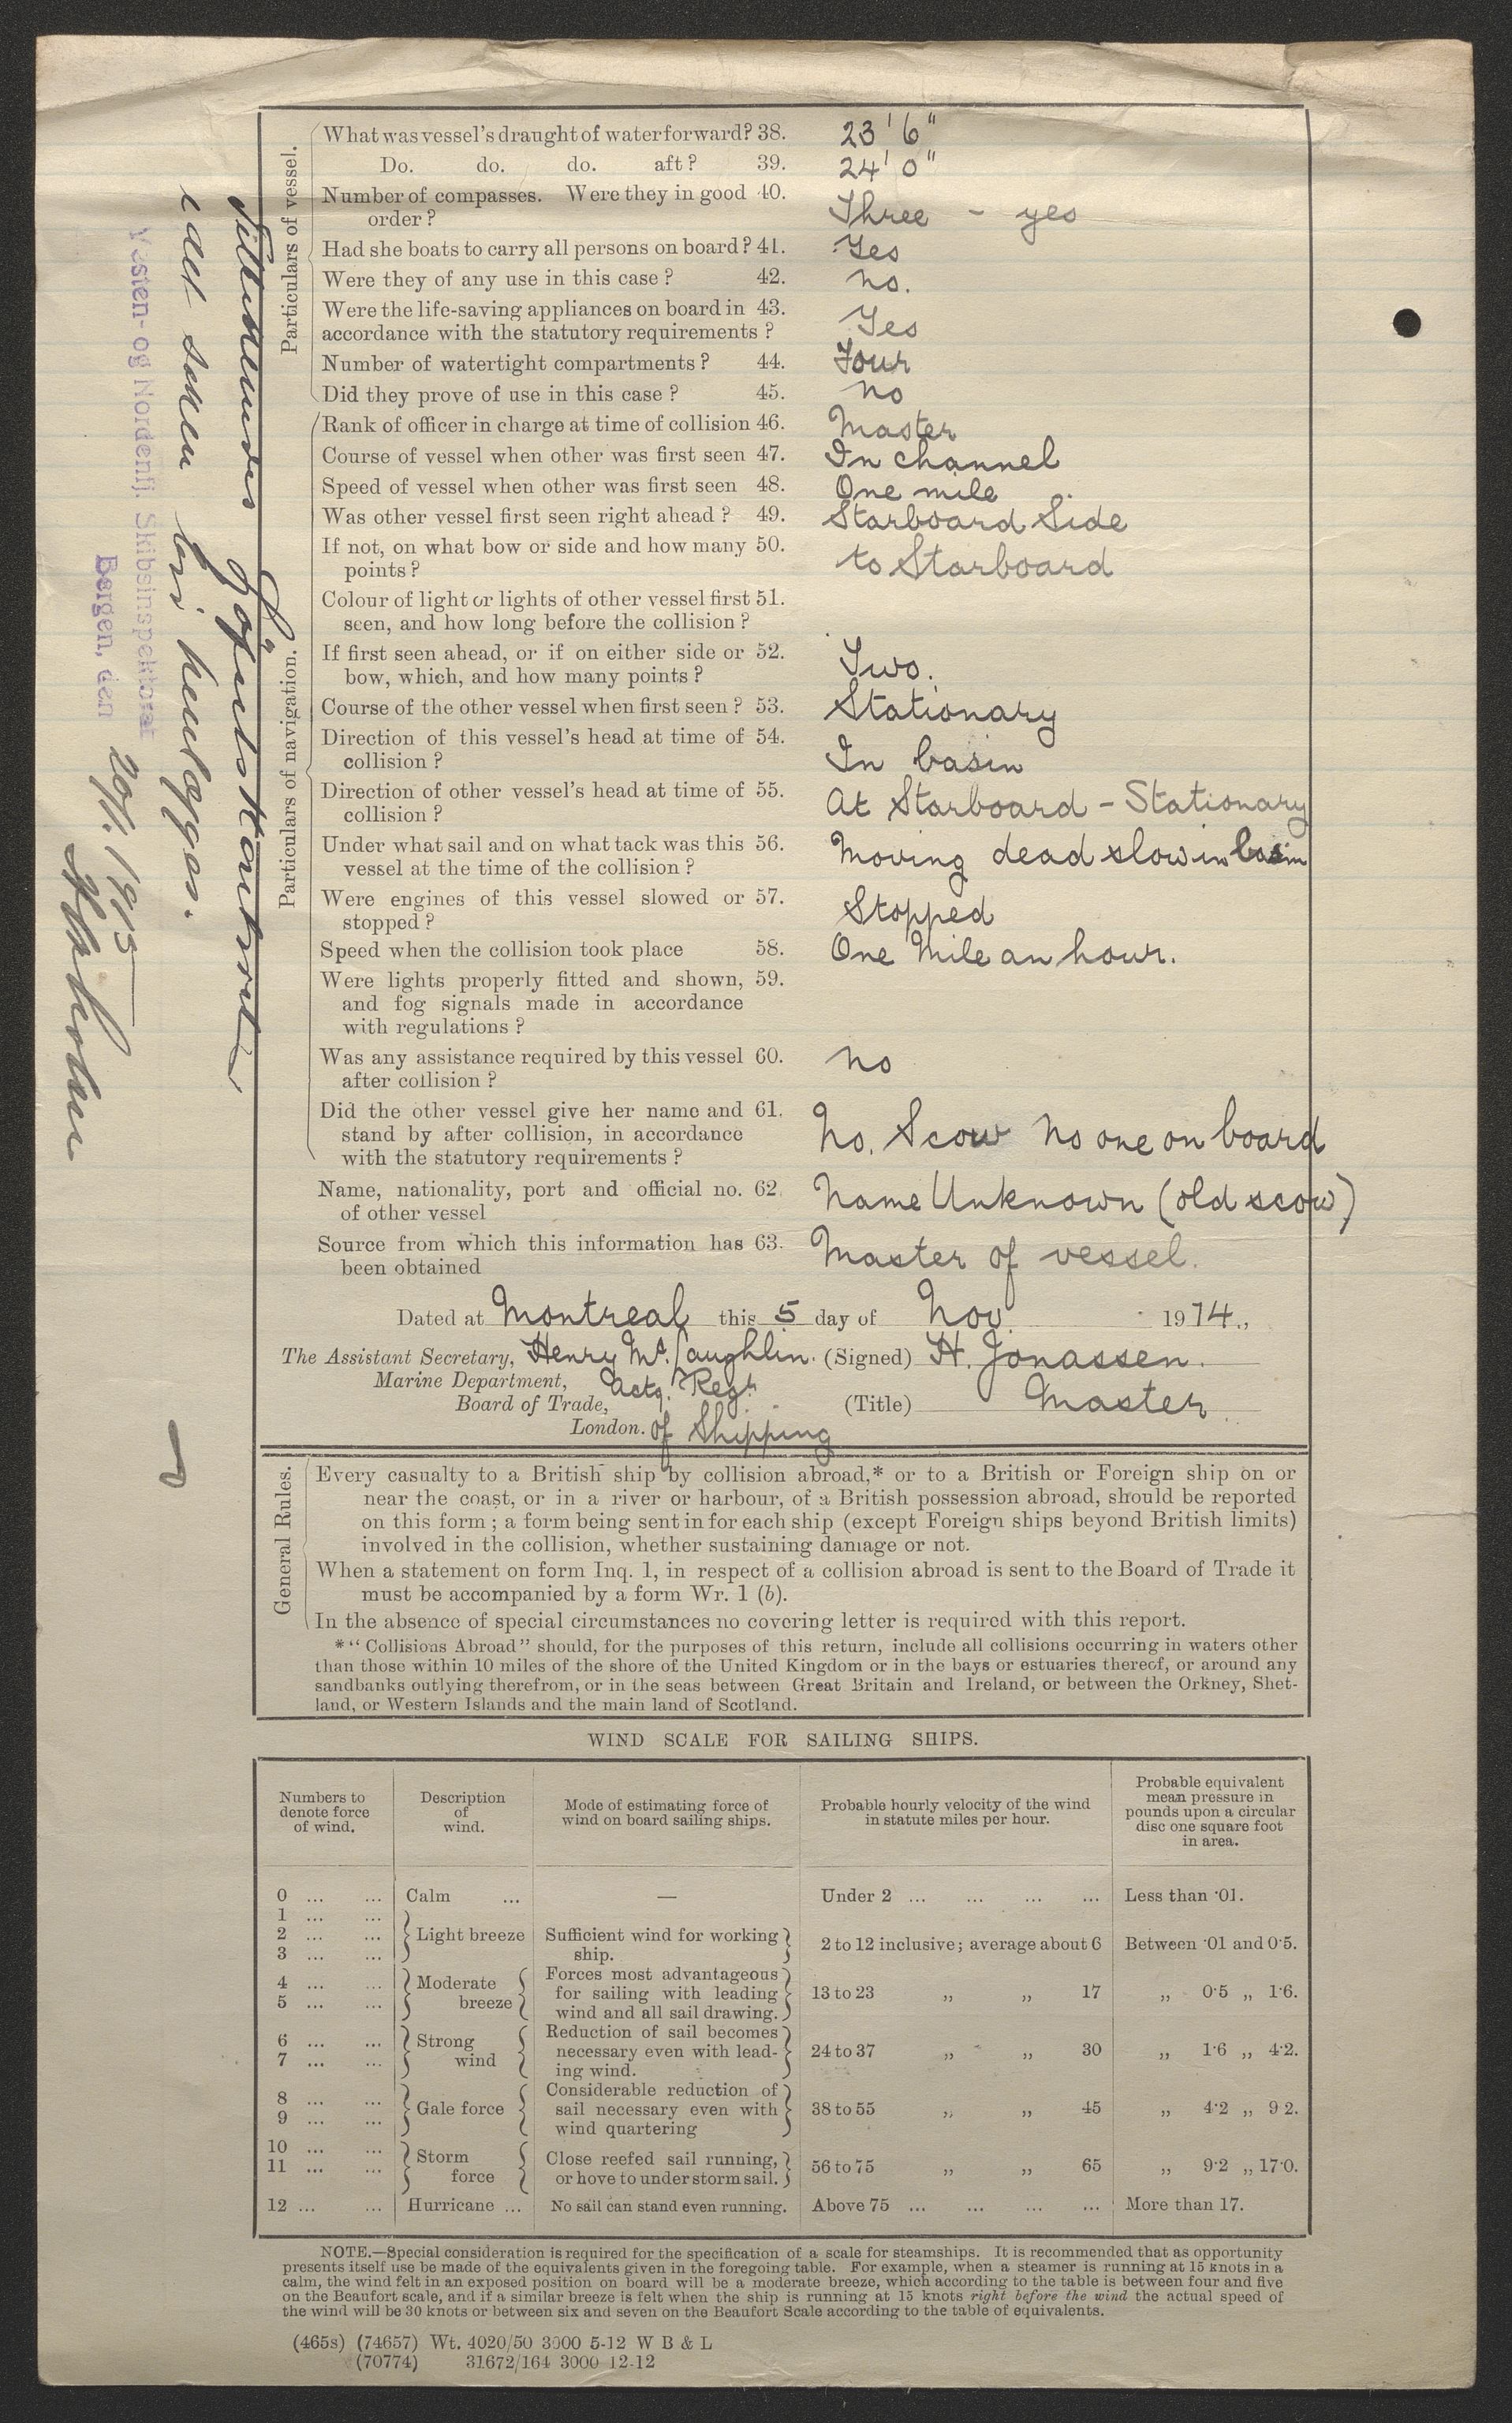 Particulars of vessel.
What was vessel's draught of water forward? 38. 23' 6"
Do. do. do. aft? 39. 24' 0"
Number of compasses. Were they in good 40.
order? Three - yes
Had she boats to carry all persons on board? 41. Yes
Were they of any use in this case? 42. no.
Were the life-saving appliances on board in 43.
accordance with the statutory requirements? Yes
Number of watertight compartments? 44. Four
Did they prove of use in this case? 45. no
Particulars of navigation.
Rank of officer in charge at time of collision 46. Master
Course of vessel when other was first seen 47. In channel
Speed of vessel when other was first seen 48. One mile
Was other vessel first seen right ahead? 49. Starboard Side
If not, on what bow or side and how many 50.
points? to Starboard
Colour of light or lights of other vessel first 51.
seen, and how long before the collision?
If first seen ahead, or if on either side or 52.
bow, which, and how many points? Two.
Course of the other vessel when first seen? 53. Stationary
Direction of this vessel's head at time of 54.
collision? In basin
Direction of other vessel's head at time of 55. At Starboard - Stationary
collision?
Under what sail and on what tack was this 56. Moving dead slow in basin
vessel at the time of the collision?
Were engines of this vessel slowed or 57.
stopped? Stopped
Speed when the collision took place 58. One Mile an hour.
Were lights properly fitted and shown, 59.
and fog signals made in accordance
with regulations?
Was any assistance required by this vessel 60. no
after collision?
Did the other vessel give her name and 61.
stand by after collision, in accordance No. Scow No one on board
with the statutory requirements?
Name, nationality, port and official no. 62. Name Unknown (old scow)
of other vessel
Source from which this information has 63. Master of vessel.
been obtained
Dated at Montreal this 5 day of Nov. 1914.,
The Assistant Secretary, Henry McLaughlin. (Signed) H. Jonassen.
Marine Department, Actg. Regr.
Board of Trade, (Title) Master
London. of Shipping
General Rules.
Every casualty to a British ship by collision abroad,* or to a British or Foreign ship on or
near the coast, or in a river or harbour, of a British possession abroad, should be reported
on this form; a form being sent in for each ship (except Foreign ships beyond British limits)
involved in the collision, whether sustaining damage or not.
When a statement on form Inq. 1, in respect of a collision abroad is sent to the Board of Trade it
must be accompanied by a form Wr. 1 (b).
In the absence of special circumstances no covering letter is required with this report.
*"Collisions Abroad" should, for the purposes of this return, include all collisions occurring in waters other
than those within 10 miles of the shore of the United Kingdom or in the bays or estuaries thereof, or around any
sandbanks outlying therefrom, or in the seas between Great Britain and Ireland, or between the Orkney, Shet-
land, or Western Islands and the main land of Scotland.
WIND SCALE FOR SAILING SHIPS.
Numbers to denote force of wind. Description of wind. Mode of estimating force of wind on board sailing ships. Probable hourly velocity of the wind in statute miles per hour. Probable equivalent mean pressure in pounds upon a circular disc one square foot in area.
0 ... ... Calm ... — Under 2 ... ... ... ... Less than ·01.
1 ... ...
2 ... ... Light breeze Sufficient wind for working 2 to 12 inclusive; average about 6 Between ·01 and 0·5.
3 ... ... ship.
4 ... ... Moderate Forces most advantageous
5 ... ... breeze for sailing with leading 13 to 23 ,, ,, 17 ,, 0·5 ,, 1·6.
wind and all sail drawing.
6 ... ... Strong Reduction of sail becomes
7 ... ... wind necessary even with lead- 24 to 37 ,, ,, 30 ,, 1·6 ,, 4·2.
ing wind.
8 ... ... Considerable reduction of
9 ... ... Gale force sail necessary even with 38 to 55 ,, ,, 45 ,, 4·2 ,, 9 2.
wind quartering
10 ... ... Storm Close reefed sail running,
11 ... ... force or hove to under storm sail. 56 to 75 ,, ,, 65 ,, 9·2 ,, 17·0.
12 ... ... Hurricane ... No sail can stand even running. Above 75 ... ... ... ... More than 17.
NOTE.—Special consideration is required for the specification of a scale for steamships. It is recommended that as opportunity
presents itself use be made of the equivalents given in the foregoing table. For example, when a steamer is running at 15 knots in a
calm, the wind felt in an exposed position on board will be a moderate breeze, which according to the table is between four and five
on the Beaufort scale, and if a similar breeze is felt when the ship is running at 15 knots right before the wind the actual speed of
the wind will be 30 knots or between six and seven on the Beaufort Scale according to the table of equivalents.
(465s) (74657) Wt. 4020/50 3000 5-12 W B & L
(70774) 31672/164 3000 12-12
Sjöfartskontoret
i det saken bör henlægges.
Vesten- og Nordenfj. Skibsinspektorat
Bergen, den 20/1. 1915